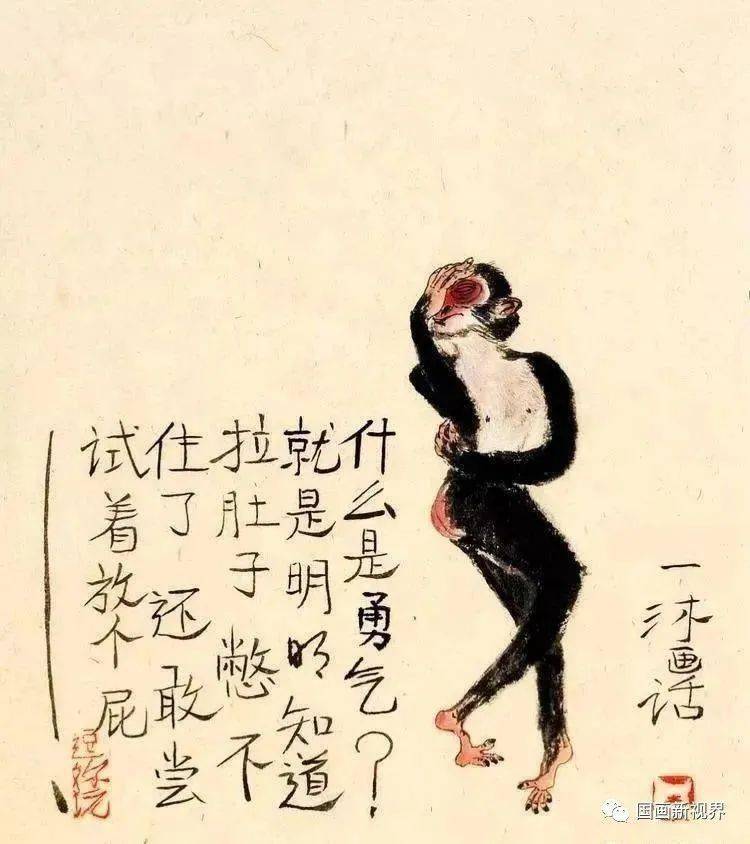 一沐画话
什么是勇气？
就是明明知道
拉肚子憋不
住了还敢尝
试着放个屁
国画新视界